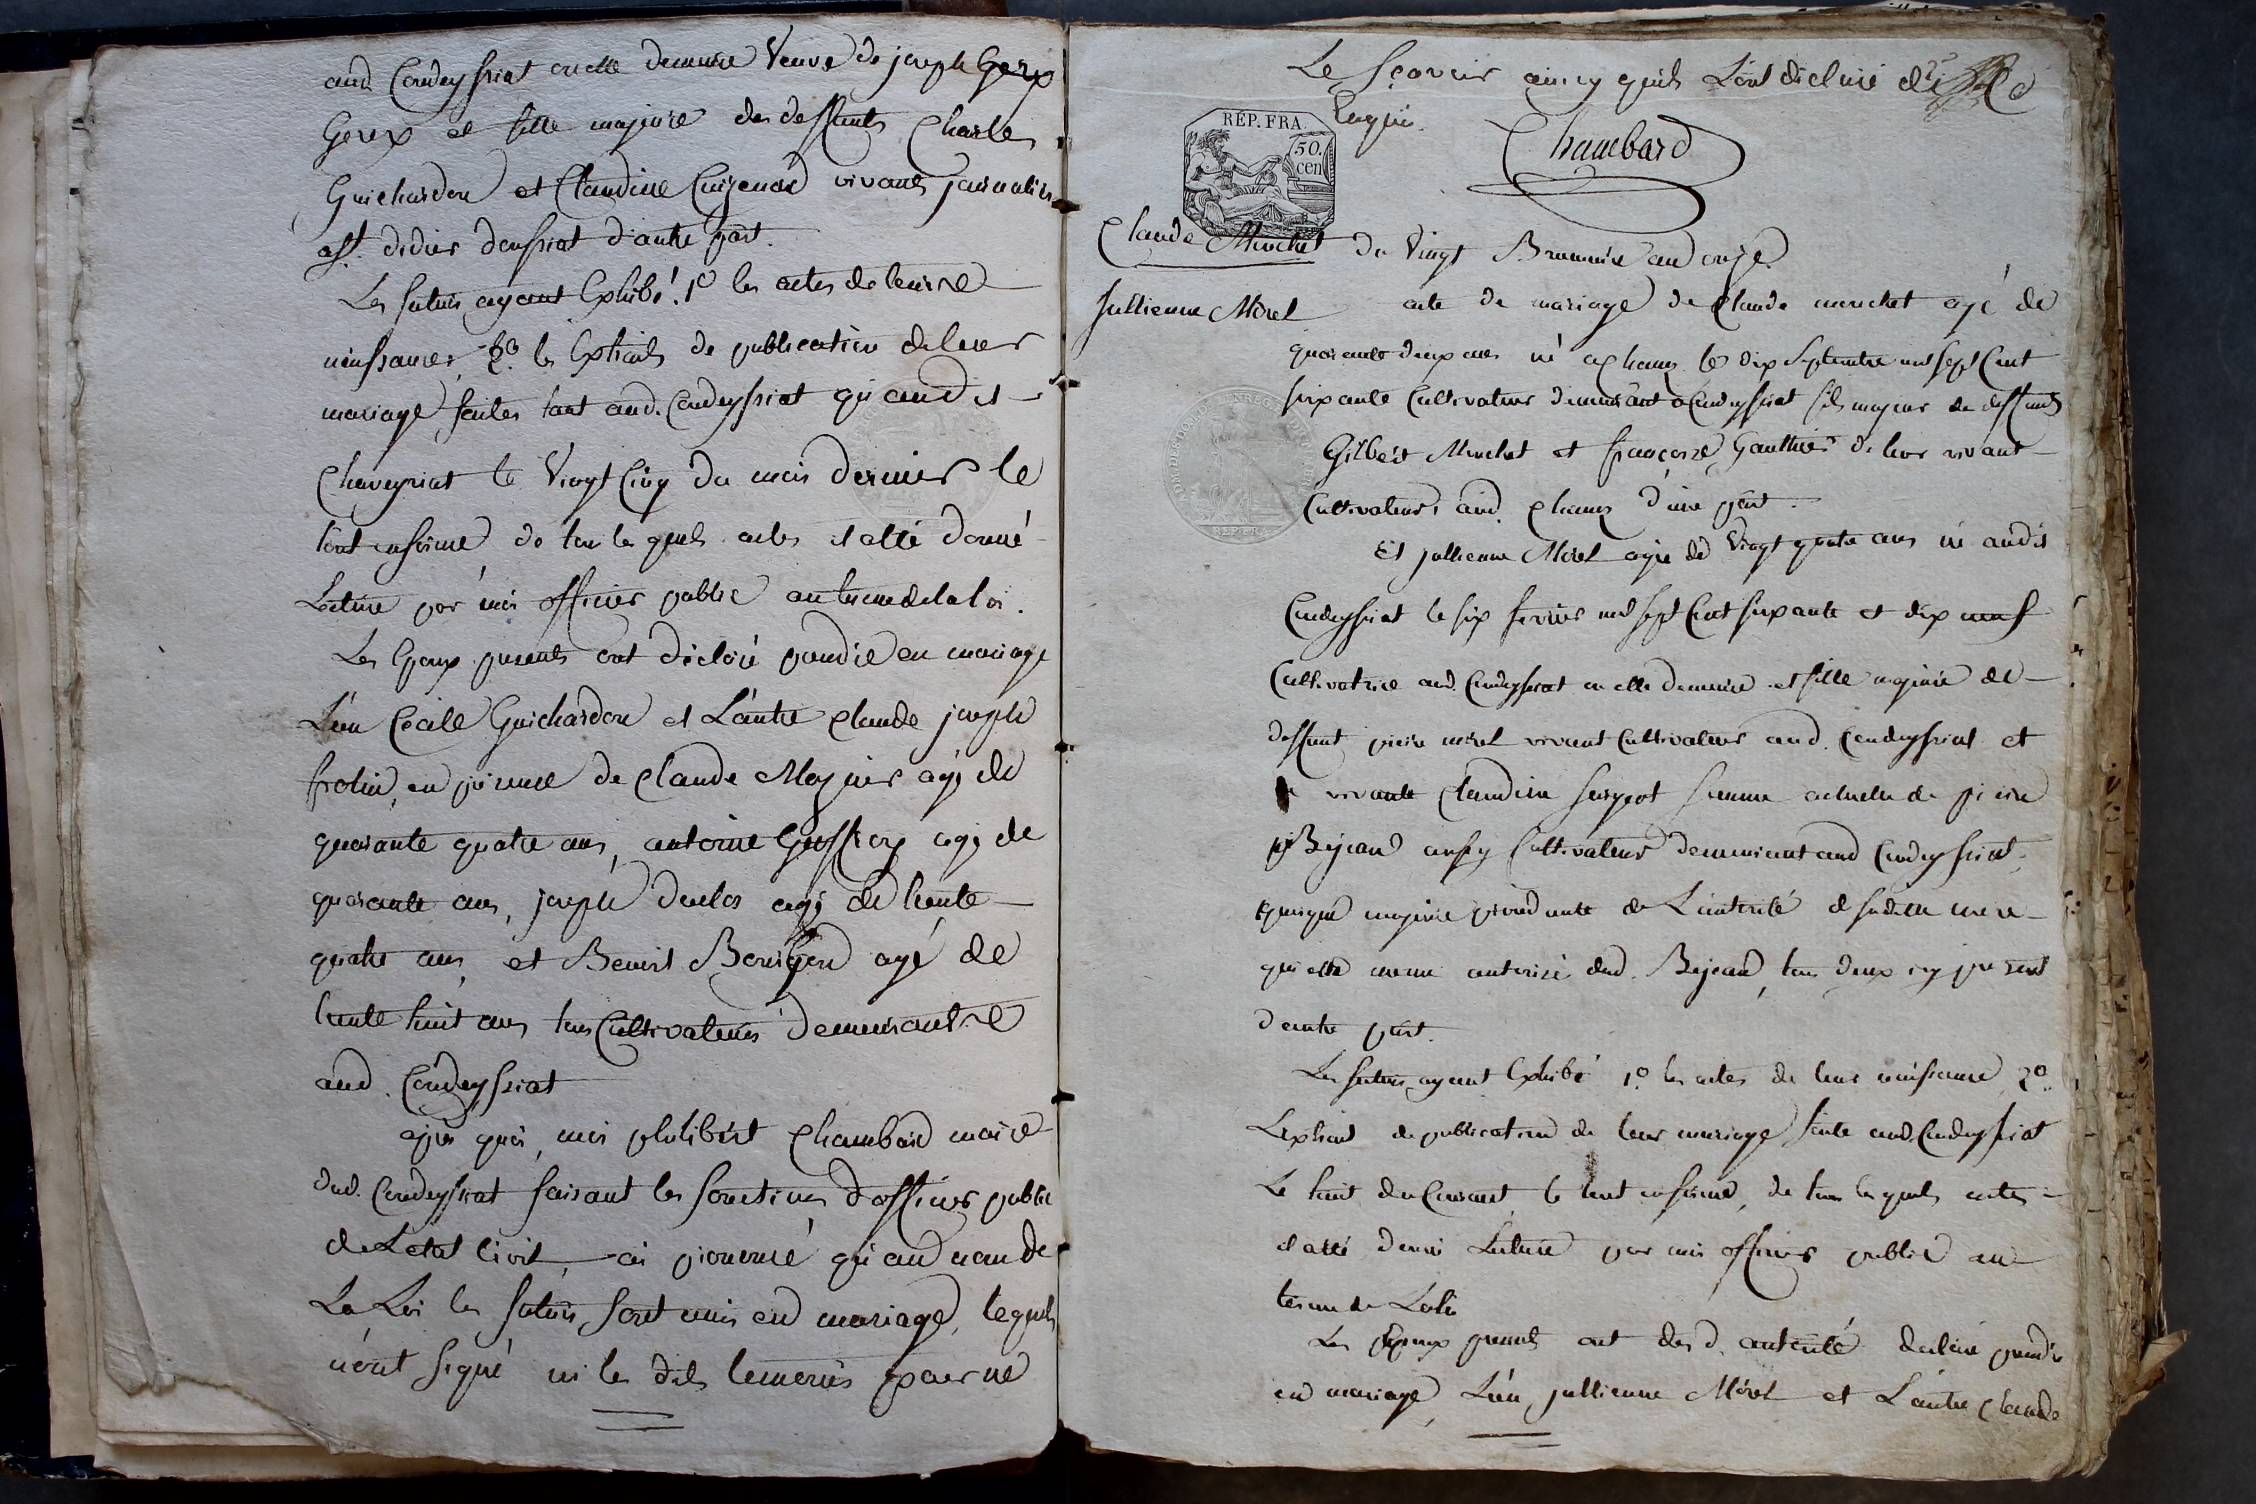 aud. Condeyssiat ou elle demeure Veuve de joseph Gerex
Gerex et fille majeure des deffunts Charles
Guichardon et Claudine Cuizenard vivants journaliers
a st. didier deussiat d'autre part.
Les futurs ayant Exhibé. 1o les actes de leur
naissance, 2o. les Extraits de publication de leur
mariage faites tant aud. Condeyssiat qu'audit
Chaveyriat le Vingt Cinq du mois dernier le
tout en forme, de tous les quels actes il a été donné
Lecture par moi officier public au terme de la loi.
Les Epoux presents ont déclaré prendre en mariage
L'un Cecile Guichardon et L'autre Claude joseph
frolin, en presence de Claude Moznier agé de
quarante quatre ans, antoine Geoffray agé de
quarante ans, joseph agé de trente
quatre ans, et Benoit agé de
trente huit ans tous Cultivateurs demeurant
aud. Condeyssiat
apres quoi, moi philibert Chambard maire
dud. Condeyssiat faisant les fonctions d'officier public
de L'etat Civil, ai prononcé qu'au nom de
La Loi les futurs sont unis en mariage, lesquels
n'ont signé ni les dits temoins pour ne
Le sçavoir ainsy quils L'ont déclaré de ce
Enquis.
Chambard
REP. FRA.
50.
cen
Claude Muchet
Jullienne Morel
du Vingt Brumaire an onze
acte de mariage de Claude muchet agé de
quarante deux ans né a chanoz le dix Septembre mil sept Cent
soixante Cultivateur demeurant a Condeyssiat fils majeur de deffunts
Gilbert Muchet et françoise Gauthier de leur vivant
Cultivateurs aud. Chanoz d'une part.
Et jullienne Morel agée de Vingt quatre ans né audit
Condeyssiat le six fevrier mil sept Cent soixante et dix neuf
Cultivatrice aud. Condeyssiat ou elle demeure et fille majeure de
deffunt pierre morel vivant Cultivateur aud. Condeyssiat et
de vivante Claudine femme actuelle de pierre
Bejean aussy Cultivateur demeurant aud Condeyssiat,
quoique majeure procedante de L'autorité de sadite mere
qui est meme autorisé dud. Bejean, tous deux icy present
d'autre part.
Les futurs ayant Exhibé 1o. les actes de leur naissance 2o.
L'extrait de publication de leur mariage faite aud. Condeyssiat
Le huit du Courant, le tout en forme, de tous les quels actes
il a été donné Lecture par moi officier public au
terme de La loi
Les Epoux presents ont des d. autorité declaré prendre
en mariage, L'un jullienne Morel et L'autre Claude